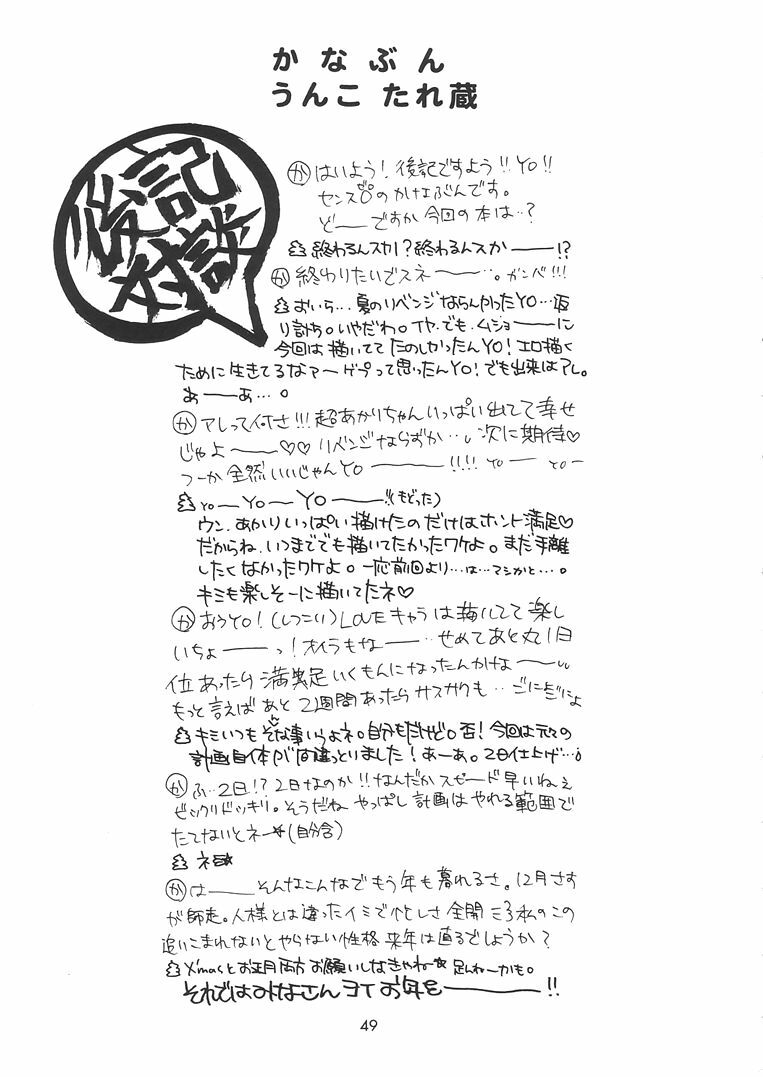 かなぶん
うんこ たれ蔵
後記
対談
かはいよう!後記ですよう!!YO!!
センズのかなぶんです。
ど──ですか今回の本は‥?
終わるんスカ!?終わるんスか───!?
か終わりたいでスネ───。ガンバ!!!
おいら…夏のリベンジならんかったYO…返
り討ち。いやだわ。イヤ、でも、ムショ───に
今回は描いててたのしかったんYO!エロ描く
ために生きてるなァーゲプって思ったんYO!でも出来はアレ。
あ──あ…。
かアレって何さ!!!超あかりちゃんいっぱい出てて幸せ
じゃよ───♡♡ リベンジならずか…。次に期待♡
つーか全然いいじゃんYO────!!!! YO── YO─
YO─YO─YO───!(もどった)
ウン、あかりいっぱい描けたのだけはホント満足♡
だからね、いつまででも描いてたかったワケよ。まだ手離
したくなかったワケよ。一応前回より…は…マシかと…。
キミも楽しそーに描いてたネ♡
かおうYO!(しつこい)LOVEキャラは描いてて楽し
いちょ──っ!オイラもなー──‥せめてあと丸1日
位あったら満足いくもんになったんかなー──
もっと言えばあと2週間あったらサスガクも‥ごにょごにょ
キミいつもそな事いうよネ。自分もだけど。否!今回は元々の
計画自体が間違っとりました!あーあ。2日仕上げ…。
かふ‥2日!?2日なのか!!なんだかスピード早いねぇ
ビックリドッキリ。そうだね やっぱし計画はやれる範囲で
たてないとネー★(自分含)
ネ★
かは───そんなこんなでもう年も暮れるさ。12月さす
が師走。人様とは違ったイミで忙しさ全開 ミ3私のこの
追いこまれないとやらない性格 来年は直るでしょうか?
X'masとお正月両方お願いしなきゃねー★足んねーかも。
それではみなさんヨイお年を─────!!
49